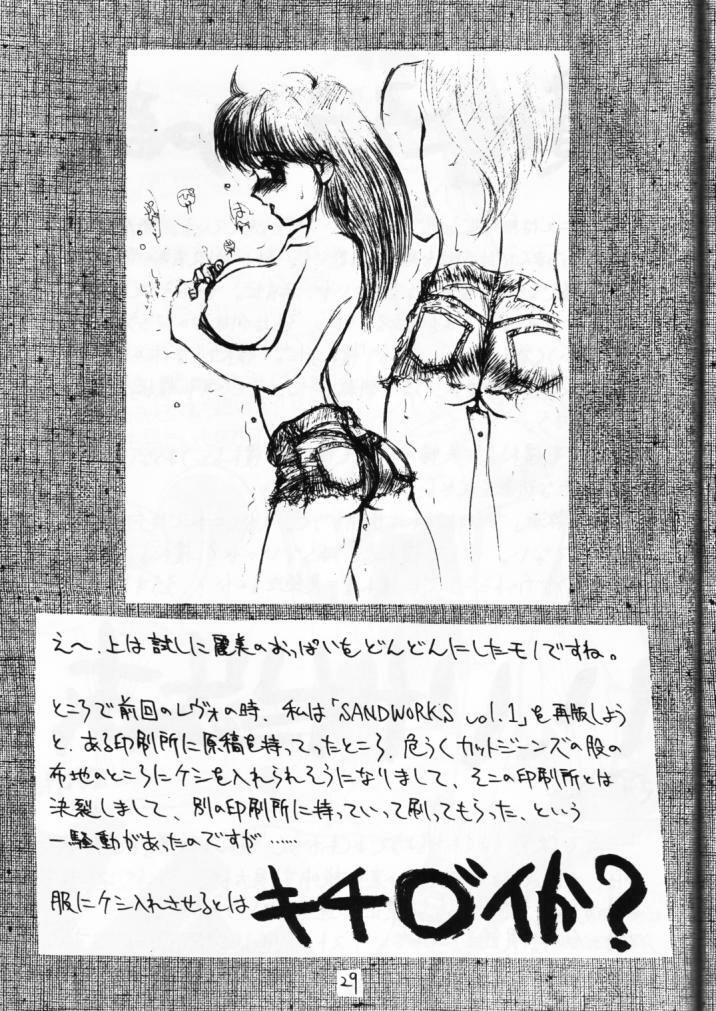 はぁ
えへ、上は試しに麗美のおっぱいをどんどんにしたモノですね。
ところで前回のレヴォの時、私は「SANDWORKS vol.1」を再版しよう
と、ある印刷所に原稿を持ってったところ、危うくカットジーンズの股の
布地のところにケシを入れられそうになりまして、そこの印刷所とは
決裂しまして、別の印刷所に持っていって刷ってもらった、という
一騒動があったのですが……
服にケシ入れさせるとは キチ○イか?
29